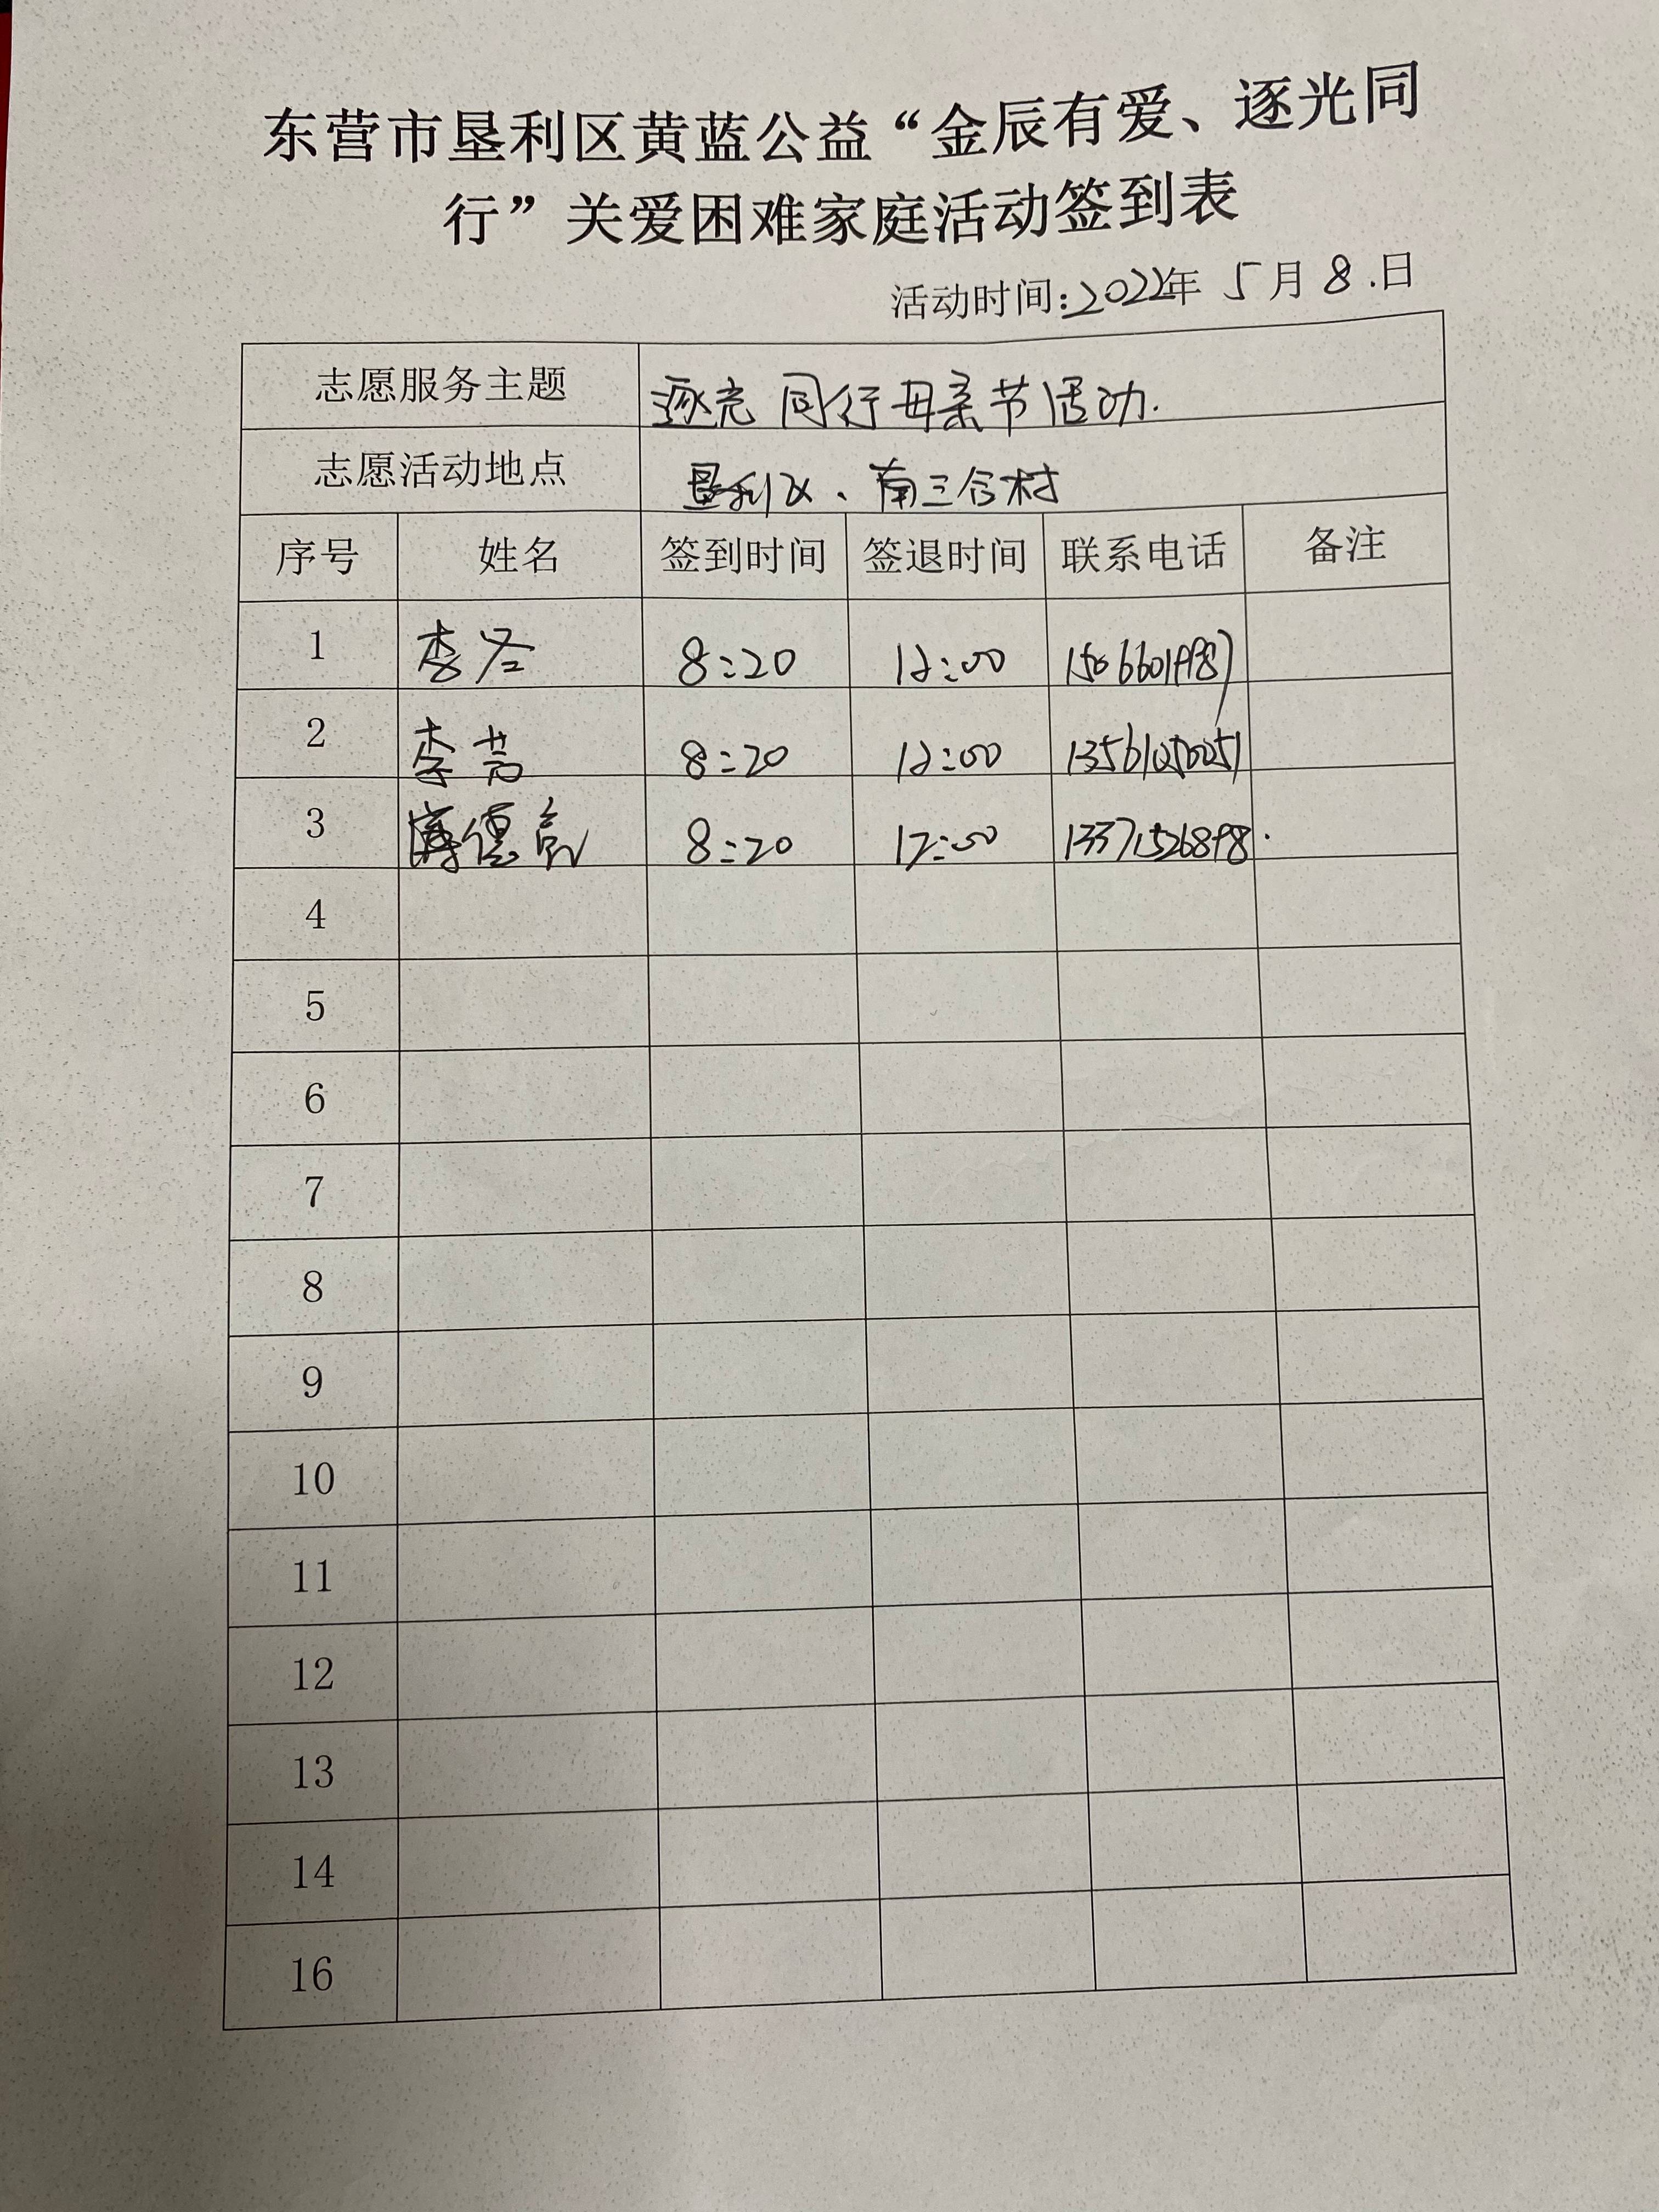 东营市垦利区黄蓝公益“金辰有爱、逐光同
行”关爱困难家庭活动签到表
活动时间:2022年 5月 8.日
志愿服务主题 逐光同行母亲节活动.
志愿活动地点 垦利区、南三合村
序号 姓名 签到时间 签退时间 联系电话 备注
1 李 8:20 12:00
2 李芳 8:20 12:00
3 8:20 12:00
4
5
6
7
8
9
10
11
12
13
14
16